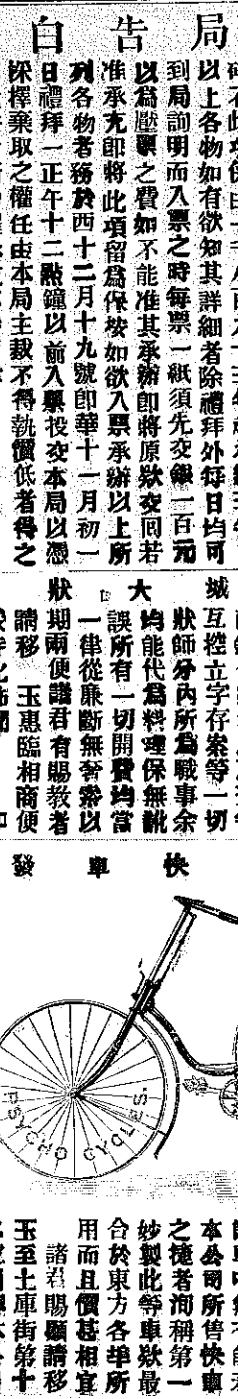 局告白
以上各物如有欲知其詳細者除禮拜外每日均可
到局詢明而入票之時每票一紙須先交銀一百元
以為壓票之費如不能准其承辦即將原欵交回若
准承充即將此項留為保按如欲入票承辦以上所
列各物者務於西十二月十九號即華十一月初一
日禮拜一正午十二點鐘以前入票投交本局以憑
採擇棄取之權任由本局主裁不得執價低者得之
城大狀
互控立字存案等一切
狀師分內所為職事余
均能代為料理保無訛
誤所有一切開費均當
一律從廉斷無奢索以
期兩便諸君有賜教者
請移 玉惠臨相商便
快車發
PSYCHO CYCLES.
本公司所售快車
之捷者洵稱第一
妙製此等車欵最
合於東方各埠所
用而且價甚相宜
諸君賜顧請移
玉至土庫街第十